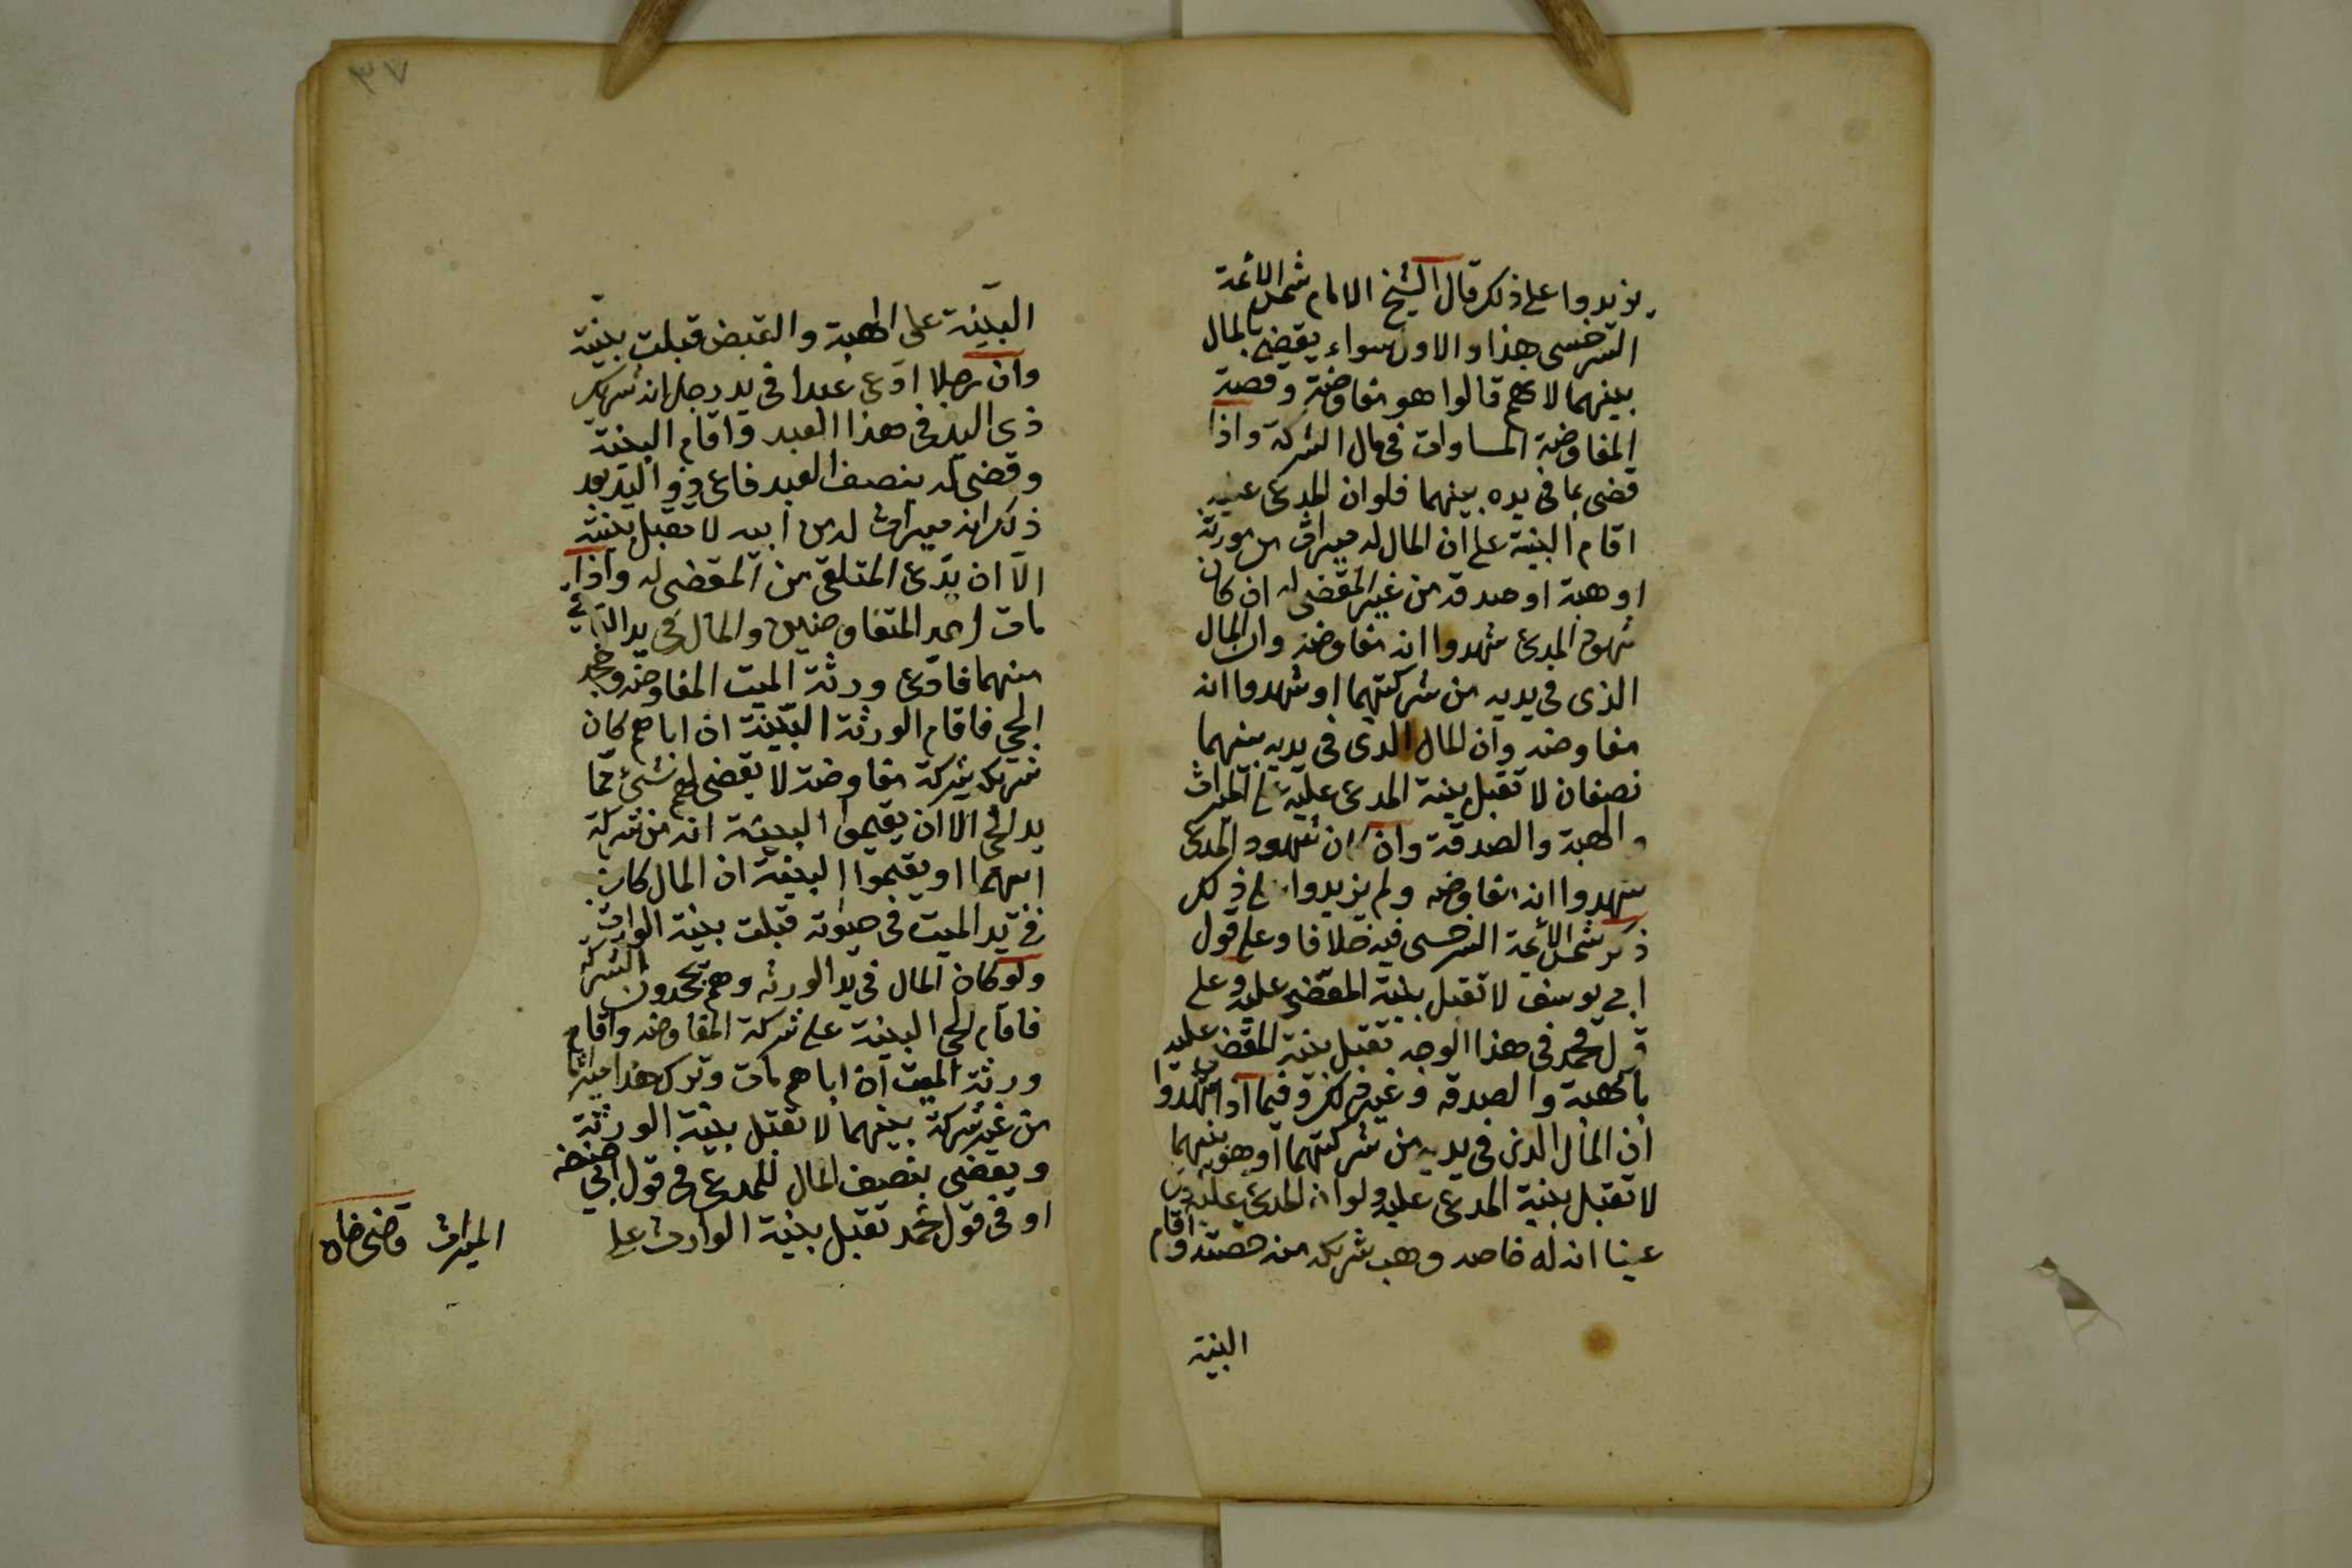 يزيدوا على ذلك قال الشيخ الامام شمس الائمة
السرخسى هذا والاول سواء يقضى بالمال
بينهما لانهم قالوا هو مفاوضة وقصية
المفاوضة المساوات فى مال الشركة واذا
قضى بما فى يده بينهما فلو ان المدعى عليه
اقام البينة على ان المال له ميراث من مورثه
او هبة او صدقة من غير المقضى له ان كان
شهود المدعى شهدوا انه مفاوضه وان المال
الذى فى يديه من شركتهما او شهدوا انه
مفاوضه وان المال الذى فى يديه بينهما
نصفان لا تقبل بينة المدعى عليه على الميراث
والهبة والصدقة وان كان شهود المدعى
شهدوا انه مفاوضه ولم يزيدوا على ذلك
ذكر شمس الائمة السرخسى فيه خلافا وعلى قول
ابى يوسف لا تقبل بينة المقضى عليه وعلى
قول محمد فى هذا الوجه تقبل بينة المقضى عليه
بالهبة والصدقه وغير ذلك وفيما اذا شهدوا
ان المال الذى فى يديه من شركتهما او هو بينهما
لا تقبل بينة المدعى عليه ولو ان المدعى عليه
عينا انه له خاصه وهب شريكه منه حصته واقام
البينة
٣٧
البينة على الهبة والقبض قبلت بينته
وان رجلا ادعى عبدا فى يد رجل انه شريك
ذى اليد فى هذا العبد واقام البينة
وقضى له بنصف العبد فادعى ذو اليد بعد
ذلك انه ميراث له من ابيه لا تقبل بينته
الا ان يدعى المتلقى من المقضى له واذا
مات احد المتفاوضين والمال فى يد الباقى
منهما فادعى ورثة الميت المفاوضه وجحد
الحى فاقام الورثة البينة ان اباهم كان
شريكه شركة مفاوضة لا يقضى لهم بشئ مما
يد الحى الا ان يقيموا البينة انه من شركة
ابيهما او يقيموا البينة ان المال كان
فى يد الميت فى حيوته قبلت بينة الوارث
ولو كان المال فى يد الورثه وهم يجحدون الشركة
فاقام الحى البينة على شركة المفاوضه واقام
ورثة الميت ان اباهم مات وترك هذا ميراثا
من غير شركة بينهما لا تقبل بينة الورثة
ويقضى بنصف المال للمدعى فى قول ابى حنيفه
او فى قول محمد تقبل بينة الوارث على
الميراث قاضى خان